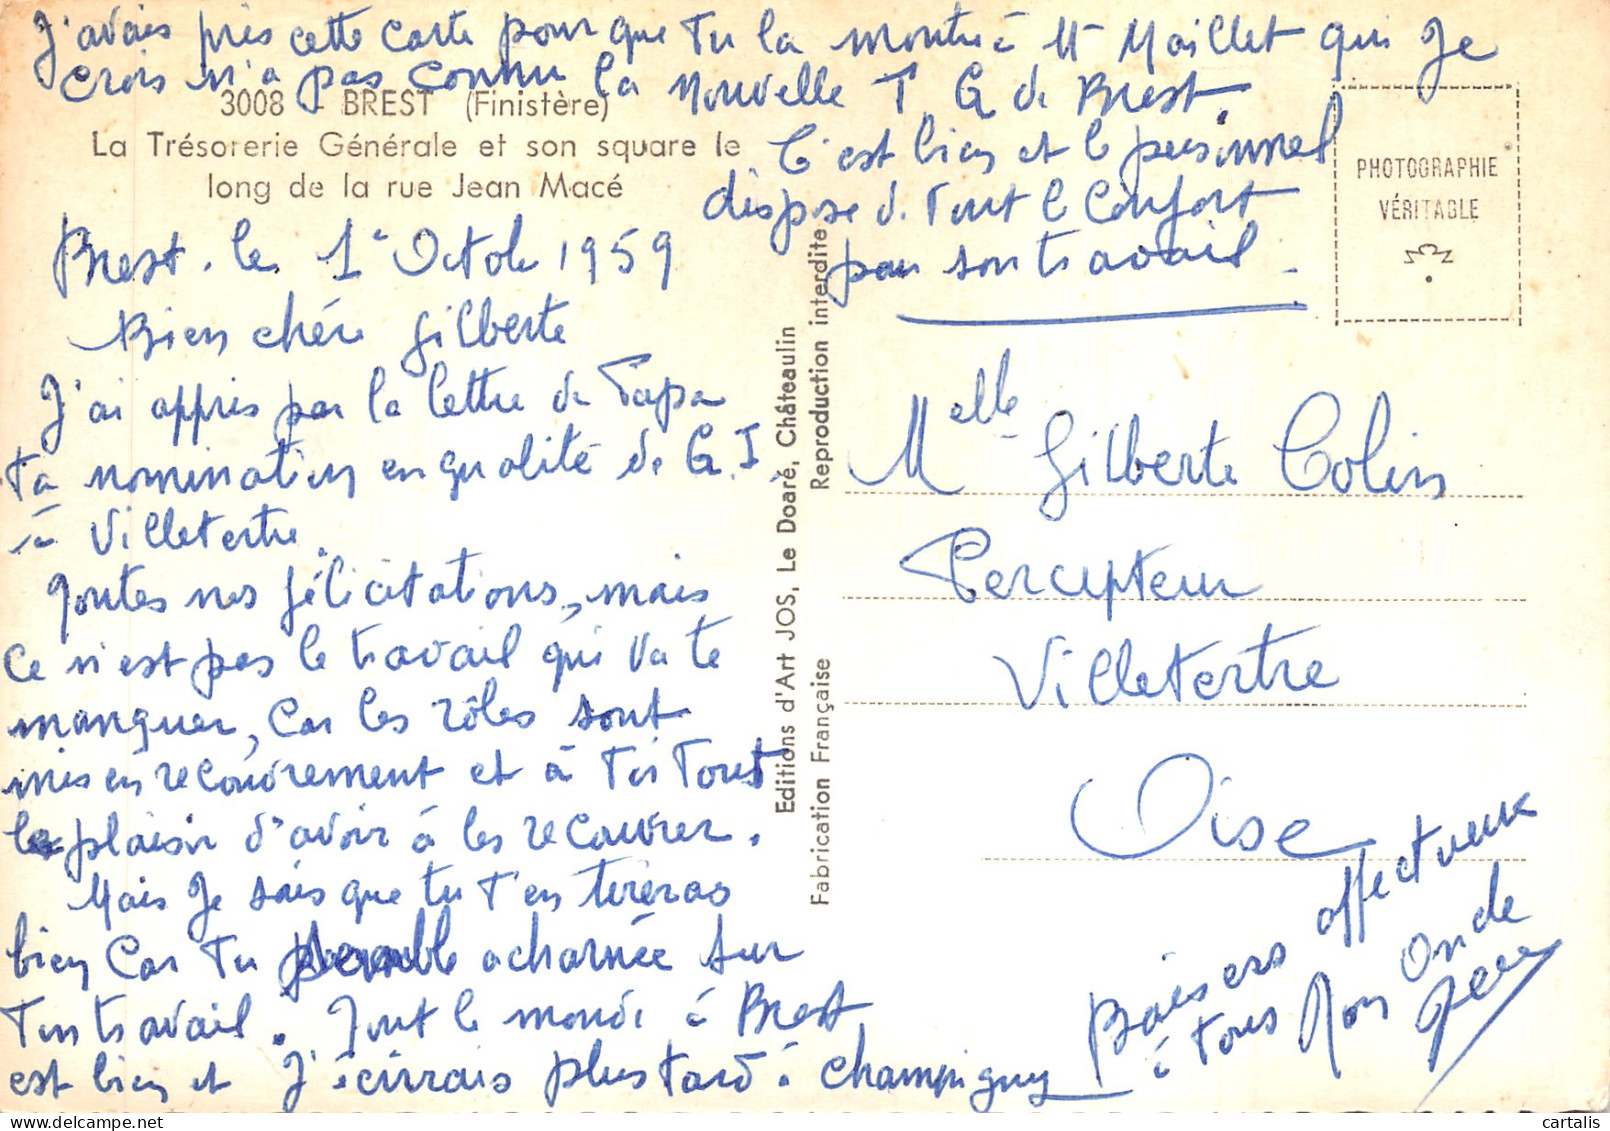 J'avais pris cette carte pour que Tu la montre à Mr Maillet qui Je
crois n'a pas connu la Nouvelle T G de Brest.
C'est bien et le personnel
dispose de Tout le Confort
pour son travail.
3008 - BREST (Finistère)
La Trésorerie Générale et son square le
long de la rue Jean Macé
PHOTOGRAPHIE
VÉRITABLE
Brest. le 1er Octobre 1959
Bien chère Gilberte
J'ai appris par la lettre de Papa
Ta nomination en qualité de G. I
à Villetertre.
Toutes nos félicitations, mais
ce n'est pas le travail qui va te
manquer, car les rôles sont
mis en recouvrement et à Toi Tout
le plaisir d'avoir à les recouvrer.
Mais Je sais que tu T'en tireras
bien Car Tu acharnée sur
Ton travail. Tout le monde à Brest
est bien et J'écrirais plus tard à Champigny
Editions d'Art JOS, Le Doaré, Châteaulin
Fabrication Française Reproduction interdite
Melle Gilberte Colin
Percepteur
Villetertre
Oise
Baisers affectueux
à Tous Mon Oncle
Jean
cartalis